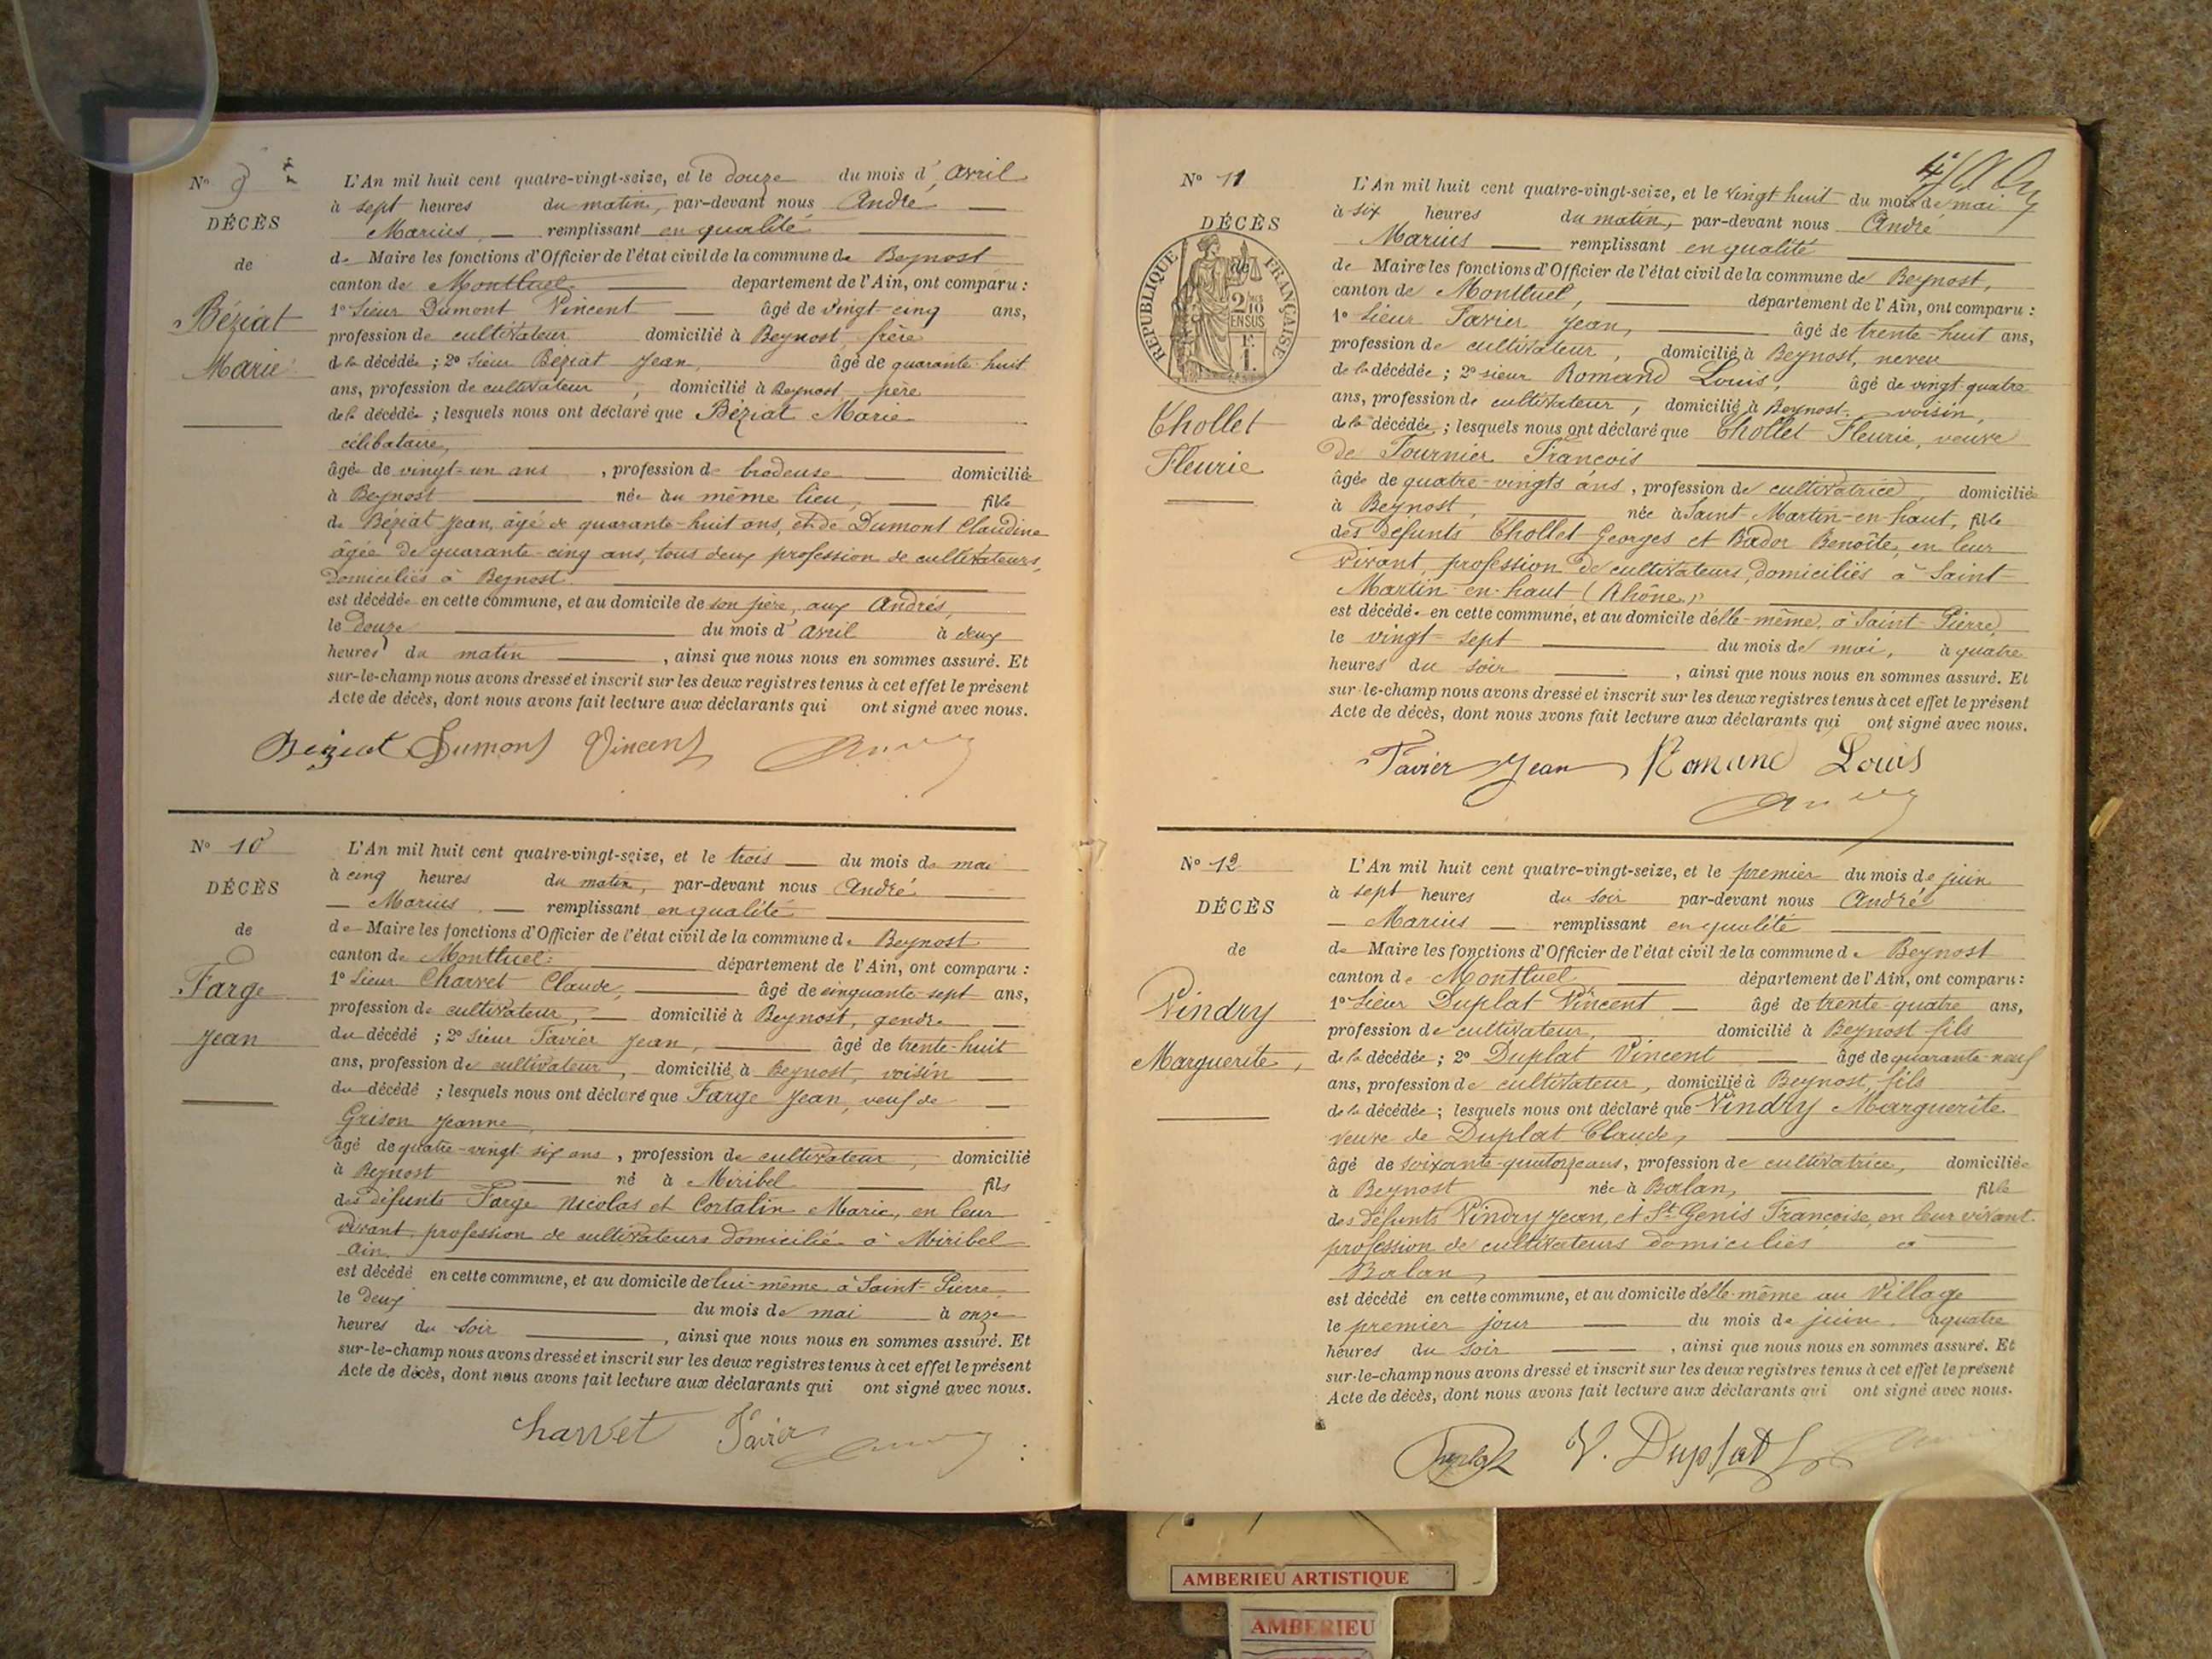 N° 9
DÉCÈS
de
Béziat
Marie
L'An mil huit cent quatre-vingt-seize, et le douze du mois d'avril
à sept heures du matin, par-devant nous André
Marius remplissant en qualité
de Maire les fonctions d'Officier de l'état civil de la commune de Beynost
canton de Montluel département de l'Ain, ont comparu :
1° Sieur Dumont Vincent âgé de vingt-cinq ans,
profession de cultivateur domicilié à Beynost, frère
de la décédée ; 2° Sieur Béziat Jean, âgé de quarante-huit
ans, profession de cultivateur, domicilié à Beynost, père
de la décédée ; lesquels nous ont déclaré que Béziat Marie
célibataire,
âgée de vingt-un ans, profession de brodeuse domiciliée
à Beynost née au même lieu, fille
de Béziat Jean, âgé de quarante-huit ans, et de Dumont Claudine
âgée de quarante-cinq ans, tous deux profession de cultivateurs,
domiciliés à Beynost.
est décédée en cette commune, et au domicile de son père, aux Andrés,
le douze du mois d'avril à deux
heures du matin, ainsi que nous nous en sommes assuré. Et
sur-le-champ nous avons dressé et inscrit sur les deux registres tenus à cet effet le présent
Acte de décès, dont nous avons fait lecture aux déclarants qui ont signé avec nous.
Béziat Dumont Vincent
N° 10
DÉCÈS
de
Farge
Jean
L'An mil huit cent quatre-vingt-seize, et le trois du mois de mai
à cinq heures du matin, par-devant nous André
Marius remplissant en qualité
de Maire les fonctions d'Officier de l'état civil de la commune de Beynost
canton de Montluel département de l'Ain, ont comparu :
1° Sieur Charvet Claude, âgé de cinquante-sept ans,
profession de cultivateur, domicilié à Beynost, gendre
du décédé ; 2° Sieur Tavier Jean, âgé de trente-huit
ans, profession de cultivateur, domicilié à Beynost, voisin
du décédé ; lesquels nous ont déclaré que Farge Jean, veuf de
Grison Jeanne,
âgé de quatre-vingt six ans, profession de cultivateur, domicilié
à Beynost né à Miribel fils
des défunts Farge Nicolas et Cortalin Marie, en leur
vivant profession de cultivateurs domicilié à Miribel
Ain.
est décédé en cette commune, et au domicile de lui-même à Saint-Pierre
le deux du mois de mai à onze
heures du soir, ainsi que nous nous en sommes assuré. Et
sur-le-champ nous avons dressé et inscrit sur les deux registres tenus à cet effet le présent
Acte de décès, dont nous avons fait lecture aux déclarants qui ont signé avec nous.
Charvet Tavier
N° 11
DÉCÈS
de
RÉPUBLIQUE FRANÇAISE
2/10 EN SUS
1 F.
Chollet
Fleurie
L'An mil huit cent quatre-vingt-seize, et le vingt huit du mois de mai
à six heures du matin, par-devant nous André
Marius remplissant en qualité
de Maire les fonctions d'Officier de l'état civil de la commune de Beynost,
canton de Montluel, département de l'Ain, ont comparu :
1° Sieur Tavier Jean, âgé de trente-huit ans,
profession de cultivateur, domicilié à Beynost, neveu
de la décédée ; 2° sieur Romand Louis, âgé de vingt-quatre
ans, profession de cultivateur, domicilié à Beynost, voisin,
de la décédée ; lesquels nous ont déclaré que Chollet Fleurie, veuve
de Fournier François
âgée de quatre-vingts ans, profession de cultivatrice, domiciliée
à Beynost, née à Saint-Martin-en-haut, fille
des défunts Chollet Georges et Bador Benoîte, en leur
vivant, profession de cultivateurs, domiciliés à Saint-
Martin-en-haut (Rhône)
est décédée en cette commune, et au domicile d'elle-même, à Saint-Pierre,
le vingt-sept du mois de mai, à quatre
heures du soir, ainsi que nous nous en sommes assuré. Et
sur-le-champ nous avons dressé et inscrit sur les deux registres tenus à cet effet le présent
Acte de décès, dont nous avons fait lecture aux déclarants qui ont signé avec nous.
Tavier Jean Romand Louis
N° 12
DÉCÈS
de
Vindry
Marguerite,
L'An mil huit cent quatre-vingt-seize, et le premier du mois de juin
à sept heures du soir par-devant nous André
Marius remplissant en qualité
de Maire les fonctions d'Officier de l'état civil de la commune de Beynost
canton de Montluel département de l'Ain, ont comparu :
1° Sieur Duplat Vincent âgé de trente-quatre ans,
profession de cultivateur, domicilié à Beynost fils
de la décédée ; 2° Duplat Vincent âgé de quarante-neuf
ans, profession de cultivateur, domicilié à Beynost, fils
de la décédée ; lesquels nous ont déclaré que Vindry Marguerite
veuve de Duplat Claude,
âgé de soixante-quatorze ans, profession de cultivatrice, domiciliée
à Beynost née à Balan, fille
des défunts Vindry Jean, et St Genis Françoise, en leur vivant
profession de cultivateurs domiciliés à
Balan,
est décédé en cette commune, et au domicile d'elle-même au Village
le premier jour du mois de juin, à quatre
heures du soir, ainsi que nous nous en sommes assuré. Et
sur-le-champ nous avons dressé et inscrit sur les deux registres tenus à cet effet le présent
Acte de décès, dont nous avons fait lecture aux déclarants qui ont signé avec nous.
Duplat V. Duplat
AMBERIEU ARTISTIQUE
AMBERIEU